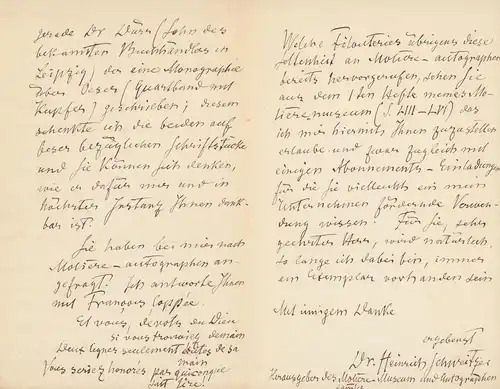 gerade Dr Dürr (Sohn des
bekannten Buchhändlers in
Leipzig) der eine Monographie
über Oeser (Quartband mit
Kupfer) geschrieben; diesem
schenkte ich die beiden auf
Oeser bezüglichen Schriftstücke
und Sie können sich denken,
wie er dafür mir und in
höchster Instanz Ihnen dank-
bar ist.
Sie haben bei mir nach
Molière-autographen an-
gefragt? Ich antworte Ihnen
mit François Coppée.
Et vous, dévots du Dieu
si vous trouviez demain
Deux lignes seulement toutes de sa
main
Vous seriez honorés par quiconque
sait lire!
Welche Filouterien übrigens diese
Seltenheit an Molière-autographen
bereits hervorgerufen, sehen Sie
aus dem 1ten Hefte meines Mo-
lièremuseum (S. LIII-LVI) das
ich mir hiermit Ihnen zuzustellen
erlaube und zwar zugleich mit
einigen Abonnements-Einladungen
für die Sie vielleicht ein mein
Unternehmen fördernde Verwen-
dung wissen. Für Sie, sehr
geehrter Herr, wird natürlich,
so lange ich dabei bin, immer
ein Exemplar vorhanden sein
Mit innigem Danke
ergebenst
Dr. Heinrich Schweitzer
Herausgeber des Molière-Museum und Autographen